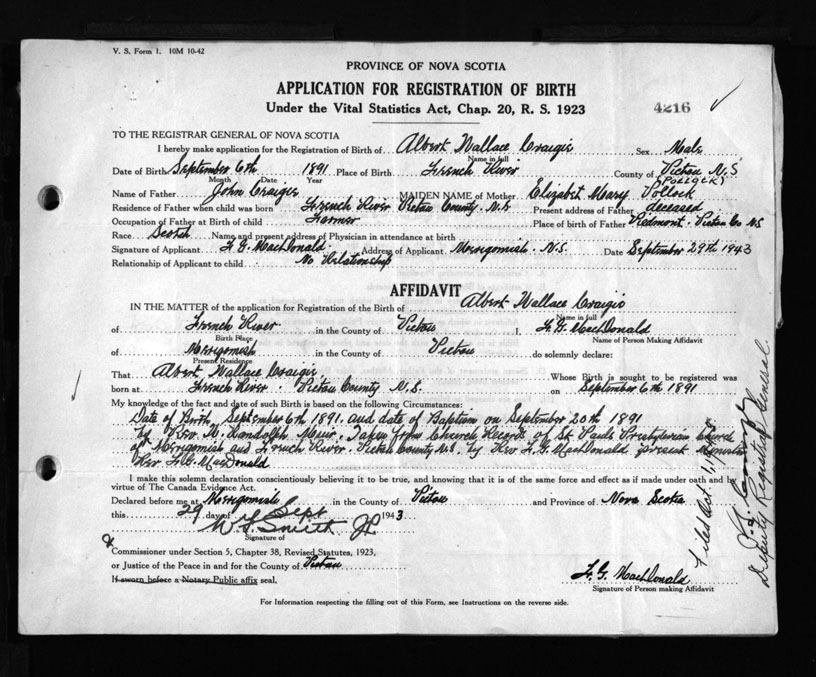 V. S. Form 1. 10M 10-42
PROVINCE OF NOVA SCOTIA
APPLICATION FOR REGISTRATION OF BIRTH
Under the Vital Statistics Act, Chap. 20, R. S. 1923
4216
TO THE REGISTRAR GENERAL OF NOVA SCOTIA
I hereby make application for the Registration of Birth of Albert Wallace Craigie Sex Male
Name in full
Date of Birth September 6th 1891 Place of Birth French River County of Pictou N.S
Month Date Year
(POLLOCK)
Name of Father John Craigie MAIDEN NAME of Mother Elizabet Mary Pollock
Residence of Father when child was born French River Pictou County. N.S Present address of Father deceased
Occupation of Father at Birth of child Farmer Place of birth of Father Piedmont. Pictou Co NS
Race Scotch Name and present address of Physician in attendance at birth
Signature of Applicant F. G. MacDonald Address of Applicant Merigomish. N.S. Date September 29th 1943
Relationship of Applicant to child No Relationship
AFFIDAVIT
IN THE MATTER of the application for Registration of the Birth of Albert Wallace Craigie
Name in full
of French River in the County of Pictou I, F. G. MacDonald
Birth Place Name of Person Making Affidavit
of Merigomish in the County of Pictou do solemnly declare:
Present Residence
That Albert Wallace Craigie Whose Birth is sought to be registered was
born at French River. Pictou County N.S. on September 6th 1891
My knowledge of the fact and date of such Birth is based on the following Circumstances:
Date of Birth September 6th 1891. and date of Baptism on September 20th 1891
by Rev. Randolph Muir. Taken from Church Records of St Pauls Presbyterian Church
of Merigomish and French River. Pictou County N.S. by Rev F. G. MacDonald present Minister
Rev. F. G. MacDonald
I make this solemn declaration conscientiously believing it to be true, and knowing that it is of the same force and effect as if made under oath and by
virtue of The Canada Evidence Act.
Declared before me at Merigomish in the County of Pictou and Province of Nova Scotia
this 29 day of Sept 1943
W. S. Smith JP
Signature of
Commissioner under Section 5, Chapter 38, Revised Statutes, 1923,
or Justice of the Peace in and for the County of Pictou
If sworn before a Notary Public affix seal.
F. G. MacDonald
Signature of Person making Affidavit
For Information respecting the filling out of this Form, see Instructions on the reverse side.
Filed Oct. 1,
Deputy Registrar General.